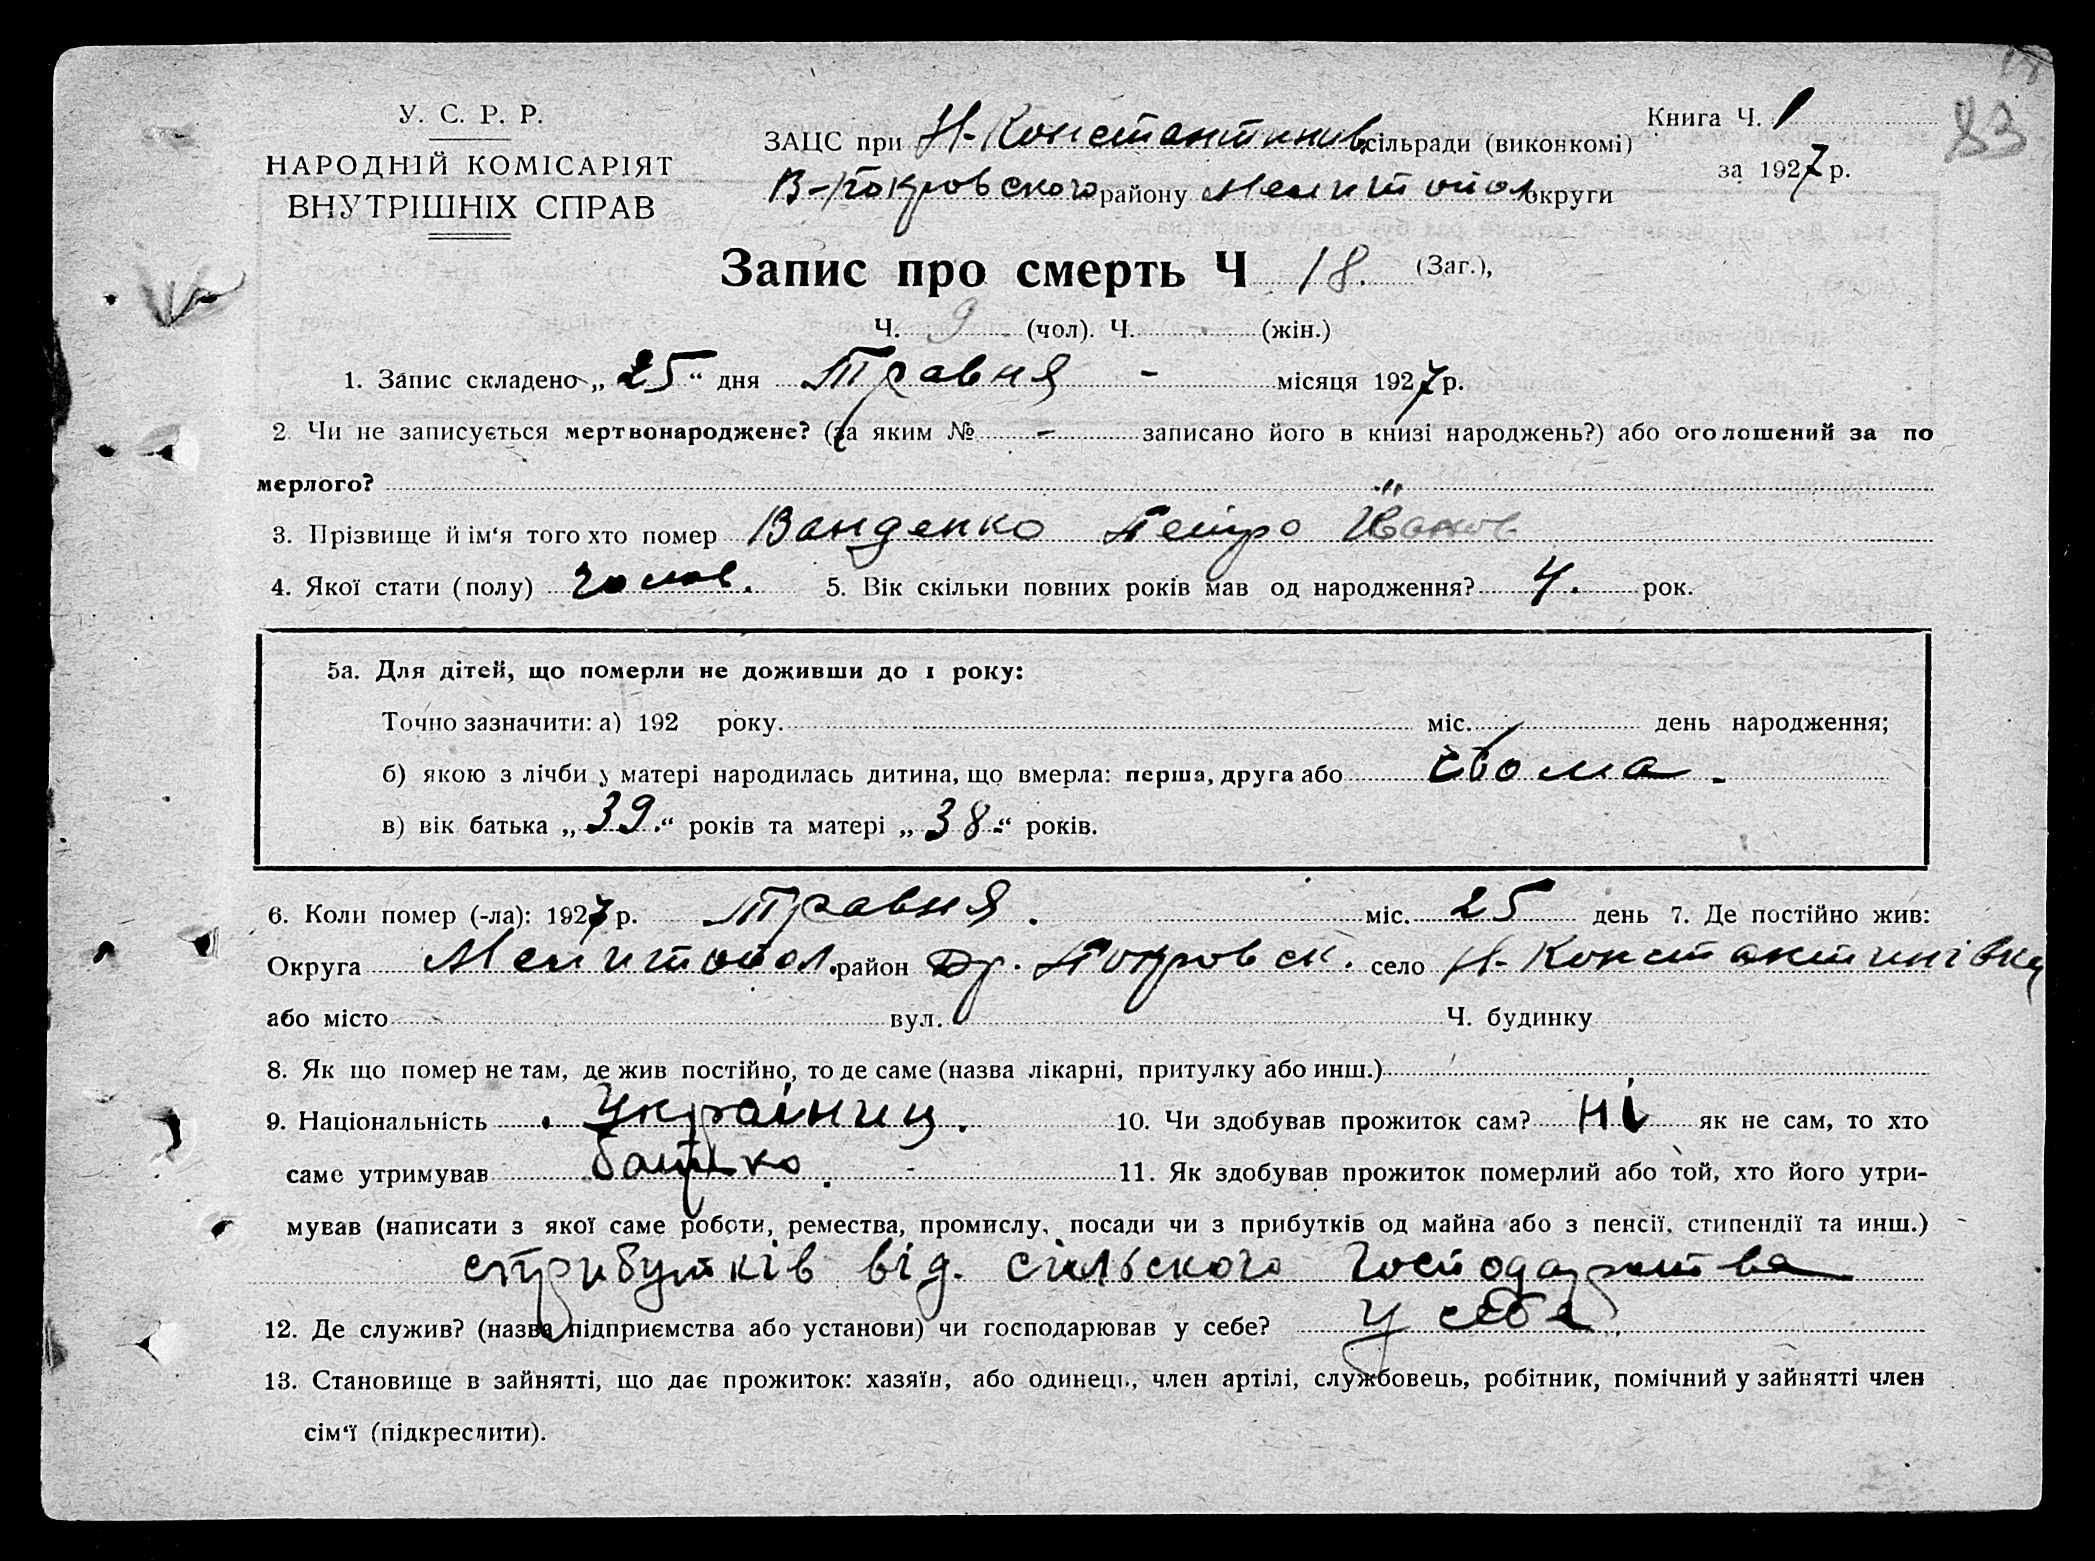 18
У. С. Р. Р.
НАРОДНІЙ КОМІСАРІЯТ
ВНУТРІШНІХ СПРАВ
ЗАЦС при Н-Константинів. сільради (виконкомі)
В-Покровского району Мелитопол округи
Книга Ч. 1
за 1927 р.
83
Запис про смерть Ч 18. (Заг.),
Ч. 9 (чол). Ч. (жін.)
1. Запис складено „ 25 “ дня Травня - місяця 1927 р.
2. Чи не записується мертвонароджене? (за яким № - записано його в книзі народжень?) або оголошений за по
мерлого?
3. Прізвище й ім‘я того хто помер Ванденко Петро Іванов
4. Якої стати (полу) чолов. 5. Вік скільки повних років мав од народження? 4. рок.
5а. Для дітей, що померли не доживши до 1 року:
Точно зазначити: а) 192 року. міс. день народження;
б) якою з лічби у матері народилась дитина, що вмерла: перша, друга або
в) вік батька „ 39. “ років та матері „ 38. “ років.
6. Коли помер (-ла): 1927 р. Травня. міс. 25 день 7. Де постійно жив:
Округа Мелитопол. район Покровск. село Н-Константинівку
або місто вул. Ч. будинку
8. Як що помер не там, де жив постійно, то де саме (назва лікарні, притулку або инш.)
9. Національність Україниц. 10. Чи здобував прожиток сам? Ні як не сам, то хто
саме утримував батько. - 11. Як здобував прожиток померлий або той, хто його утри-
мував (написати з якої саме роботи, ремества, промислу, посади чи з прибутків од майна або з пенсії, стипендії та инш.)
с прибутків від. сільского господарства
12. Де служив? (назва підприємства або установи) чи господарював у себе? у себе
13. Становище в зайнятті, що дає прожиток: хазяїн, або одинець, член артілі, службовець, робітник, помічний у зайнятті член
сім‘ї (підкреслити).